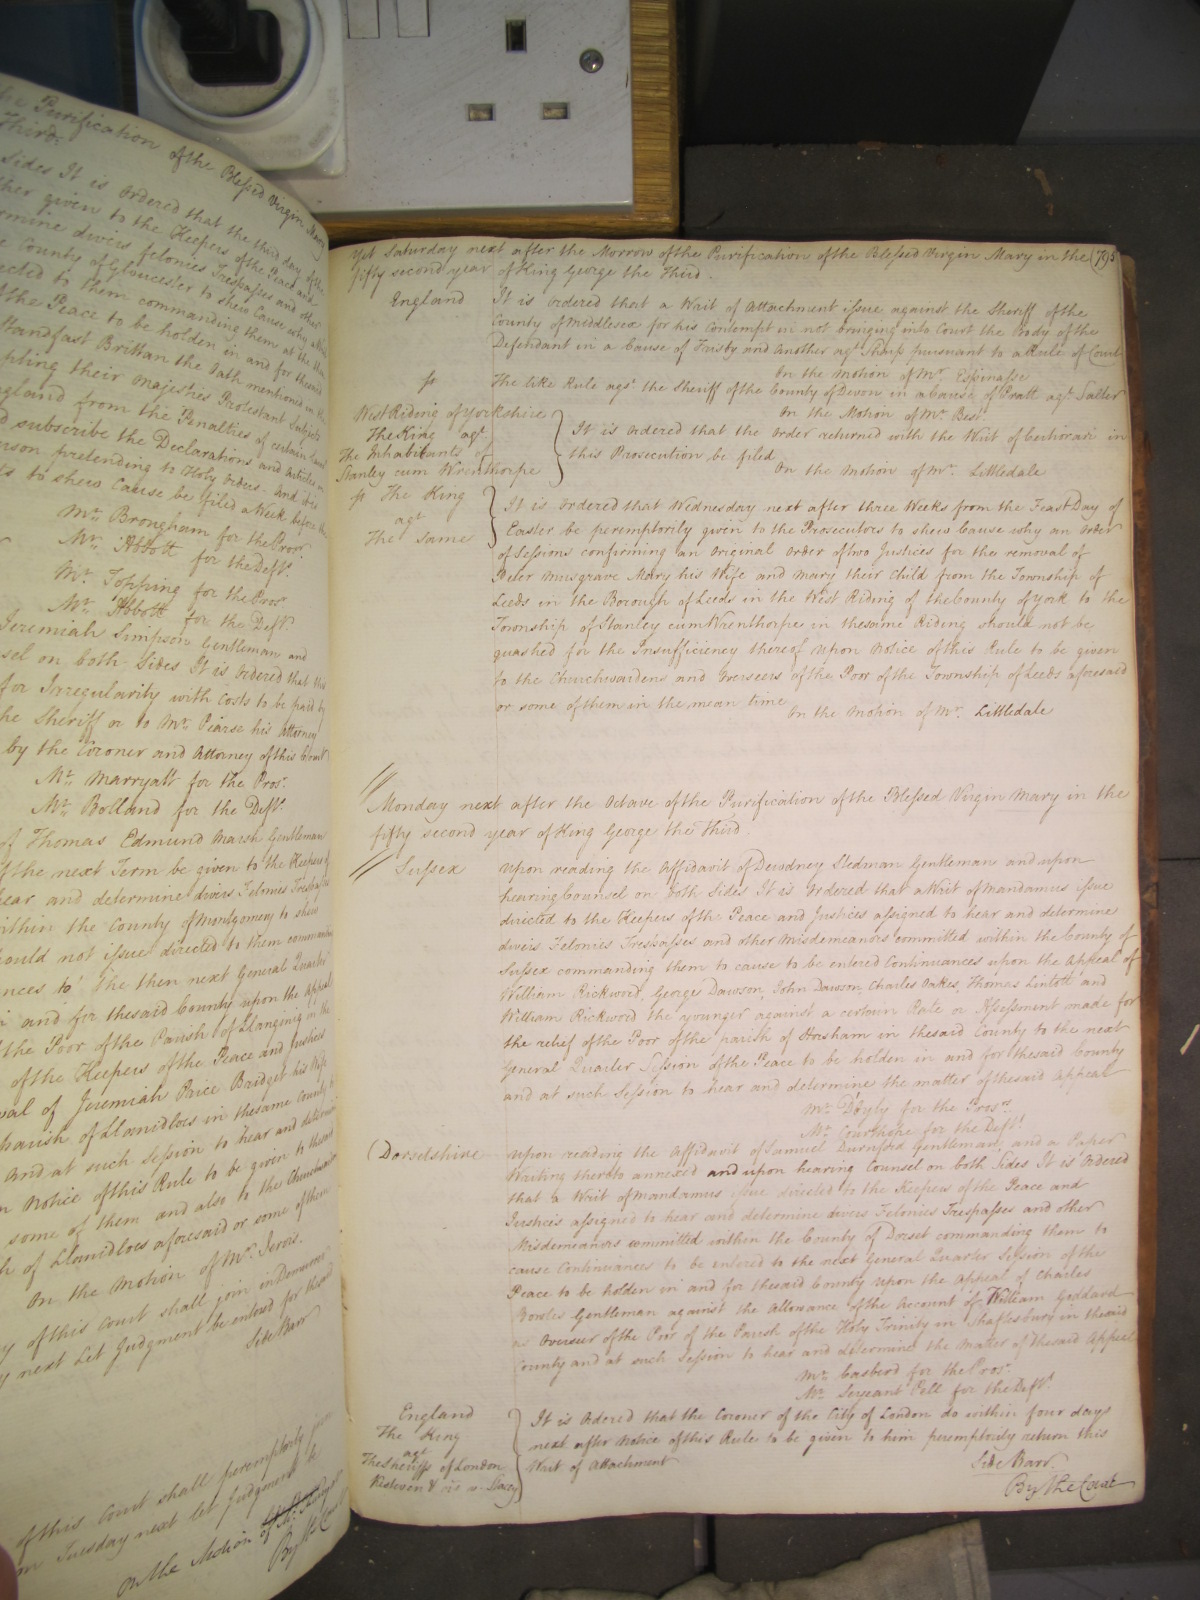 the Purification of the Blessed Virgin Mary
Third.
Sides It is ordered that the third day of the
given to the Keepers of the Peace and
divers felonies Trespasses and other
County of Gloucester to shew Cause why a
directed to them commanding them at the
the Peace to be holden in and for the said
Standfast Brittan the Oath mentioned in the
their Majesties Protestant Subjects
England from the Penalties of certain Laws
subscribe the Declarations and Articles
pretending to Holy Orders. And it is
to shew Cause be filed a Week before the
Mr. Brougham for the Prosr.
Mr. Abbott for the Deft.
Mr. Topping for the Prosr.
Mr. Abbott for the Deft.
Jeremiah Simpson Gentleman and
on both Sides It is ordered that this
for Irregularity with Costs to be paid by
the Sheriff or to Mr. Pearse his Attorney
by the Coroner and Attorney of this Court
Mr. Marryatt for the Prosr.
Mr. Bolland for the Deft.
of Thomas Edmund Marsh Gentleman
of the next Term be given to the Keepers of
hear and determine divers Felonies Trespasses
within the County of Montgomery to shew
should not issue directed to them commanding
to the then next General Quarter
and for the said County upon the Appeal
the Poor of the Parish of Llangurig in the
of the Keepers of the Peace and Justices
of Jeremiah Price Bridget his Wife
parish of Llanidloes in the same County
and at such Session to hear and determine
Notice of this Rule to be given to the said
some of them and also to the Churchwardens
of Llanidloes aforesaid or some of them
On the Motion of Mr. Jervis.
of this Court shall join in Demurrer
next Let Judgment be entered for the said
Side Barr
of this Court shall peremptorily join
on Tuesday next let Judgment
On the Motion
By the Court
Yet Saturday next after the Morrow of the Purification of the Blessed Virgin Mary in the (795
fifty second year of King George the Third.
England It is ordered that a Writ of Attachment issue against the Sheriff of the
County of Middlesex for his Contempt in not bringing into Court the Body of the
Defendant in a Cause of Frisby and Another agt. Sharp pursuant to a Rule of Court
On the Motion of Mr. Espinasse
The like Rule agst. the Sheriff of the County of Devon in a Cause of Pratt agt. Salter
On the Motion of Mr. Best
West Riding of Yorkshire
The King agt.
The Inhabitants of
Stanley cum Wrenthorpe
It is ordered that the Order returned with the Writ of Certiorari in
this Prosecution be filed
On the Motion of Mr. Littledale
The King
agt
The same
It is ordered that Wednesday next after three Weeks from the Feast Day of
Easter be peremptorily given to the Prosecutors to shew Cause why an Order
of Sessions confirming an Original Order of two Justices for the removal of
Peter Musgrave Mary his Wife and Mary their Child from the Township of
Leeds in the Borough of Leeds in the West Riding of the County of York to the
Township of Stanley cum Wrenthorpe in the same Riding should not be
quashed for the Insufficiency thereof upon Notice of this Rule to be given
to the Churchwardens and Overseers of the Poor of the Township of Leeds aforesaid
or some of them in the mean time
On the Motion of Mr. Littledale
Monday next after the Octave of the Purification of the Blessed Virgin Mary in the
fifty second year of King George the Third.
Sussex Upon reading the Affidavit of Dewdney Stedman Gentleman and upon
hearing Counsel on both Sides It is Ordered that a Writ of Mandamus issue
directed to the Keepers of the Peace and Justices assigned to hear and determine
divers Felonies Trespasses and other Misdemeanors committed within the County of
Sussex commanding them to cause to be entered Continuances upon the Appeal of
William Rickword, George Dawson, John Dawson, Charles Oakes, Thomas Lintott and
William Rickword the younger against a certain Rate or Assessment made for
the relief of the Poor of the parish of Horsham in the said County to the next
General Quarter Session of the Peace to be holden in and for the said County
and at such Session to hear and determine the matter of the said Appeal
Mr. D'Oyly for the Prosrs.
Mr. Courthope for the Deft.
(Dorsetshire Upon reading the Affidavit of Samuel Durnford Gentleman, and a Paper
Writing thereto annexed and upon hearing Counsel on both Sides It is Ordered
that a Writ of Mandamus issue directed to the Keepers of the Peace and
Justices assigned to hear and determine divers Felonies Trespasses and other
Misdemeanors committed within the County of Dorset commanding them to
cause Continuances to be entered to the next General Quarter Session of the
Peace to be holden in and for the said County upon the Appeal of Charles
Bowles Gentleman against the Allowance of the Account of William Goddard
as Overseer of the Poor of the Parish of the Holy Trinity in Shaftesbury in the said
County and at such Session to hear and determine the Matter of the said Appeal
Mr. Casberd for the Prosr.
Mr. Serjeant Pell for the Deft.
England
The King
agt
The Sheriffs of London
It is Ordered that the Coroner of the City of London do within four days
next after Notice of this Rule to be given to him peremptorily return this
Writ of Attachment
Side Barr.
By the Court